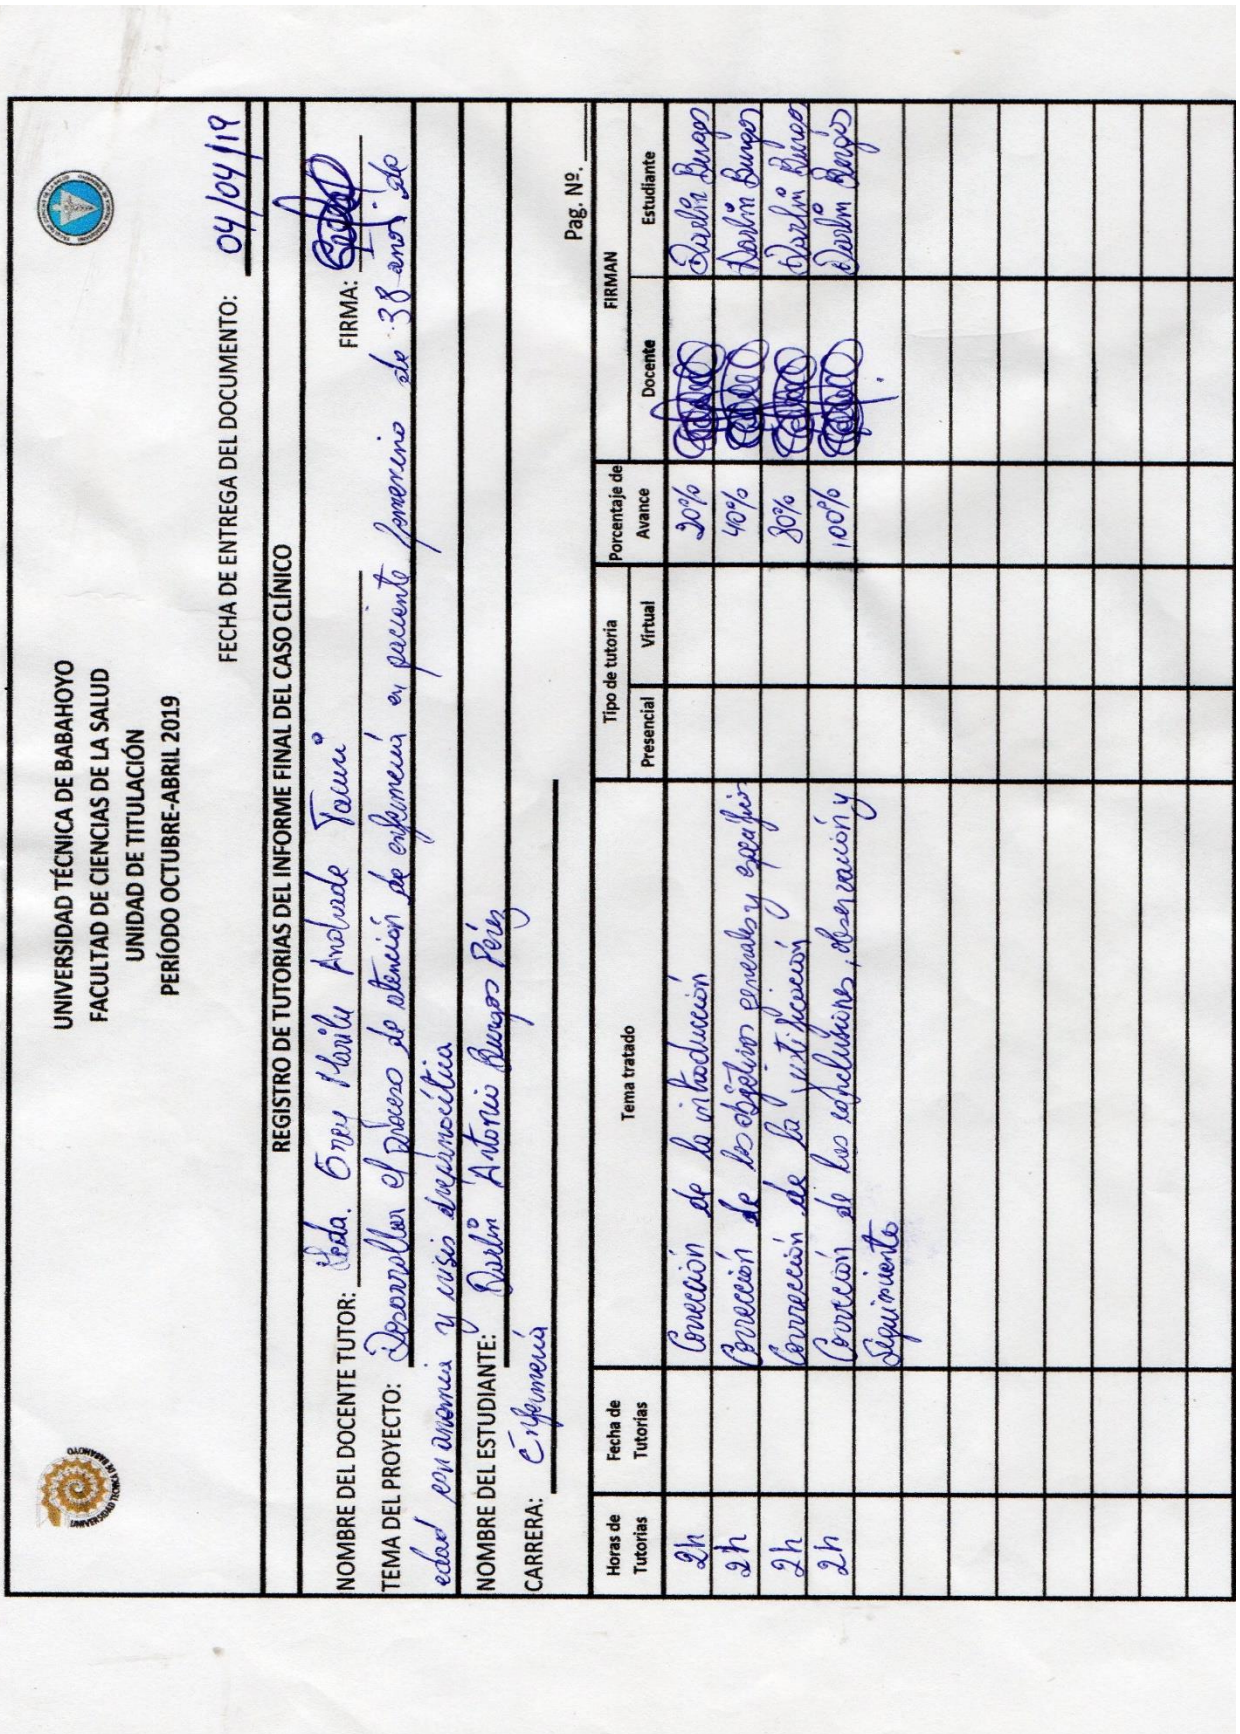 UNIVERSIDAD TÉCNICA DE BABAHOYO
FACULTAD DE CIENCIAS DE LA SALUD
UNIDAD DE TITULACIÓN
PERÍODO OCTUBRE-ABRIL 2019
UNIVERSIDAD TECNICA DE BABAHOYO
FECHA DE ENTREGA DEL DOCUMENTO: 04/04/19
REGISTRO DE TUTORIAS DEL INFORME FINAL DEL CASO CLÍNICO
NOMBRE DEL DOCENTE TUTOR: Lcda. Grey Marilu Andrade Tacuri FIRMA:
TEMA DEL PROYECTO: Desarrollar el proceso de atención de enfermería en paciente femenino de 38 años de
edad con anemia y crisis drepanocítica
NOMBRE DEL ESTUDIANTE: Darlin Antonio Burgos Pérez
CARRERA: Enfermería
Pag. Nº.
Horas de Tutorias Fecha de Tutorias Tema tratado Tipo de tutoria Porcentaje de Avance FIRMAN
Presencial Virtual Docente Estudiante
2h Corrección de la introducción 20% Darlin Burgos
2h Corrección de los objetivos generales y específicos 40% Darlin Burgos
2h Corrección de la justificación 80% Darlin Burgos
2h Corrección de las conclusiones, observación y 100% Darlin Burgos
Seguimiento